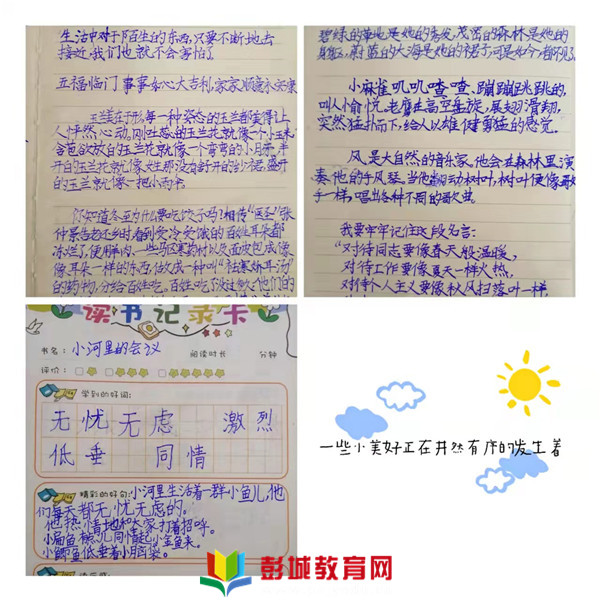 生活中对于陌生的东西,只要不断地去
接近,我们也就不会害怕了。
五福临门 事事如心大吉利,家家顺意永安康
玉兰美在于形,每一种姿态的玉兰都美得让
人怦然心动,刚吐蕊的玉兰花就像一个小玉米,
含苞欲放的玉兰花就像一个弯弯的小月亮,半
开的玉兰花就像女生那没有舒开的沙裙,盛开
的玉兰就像一把小雨伞。
你知道冬至为什么要吃饺子吗?相传“医圣”张
仲景告老还乡时看到受冷受饿的百姓耳朵都
冻烂了,便用羊肉、一些驱寒药材以及面皮包成像
像耳朵一样的东西,做成一种叫“祛寒娇耳汤”
的药物,分给百姓吃。百姓吃了
碧绿的草地是她的秀发,茂密的森林是她的
身躯,蔚蓝的大海是她的裙子,可是如今,都不见了
小麻雀叽叽喳喳、蹦蹦跳跳的,
叫人愉悦,老鹰在高空盘旋,展翅滑翔,
突然猛扑而下,给人以雄健勇猛的感觉。
风,是大自然的音乐家,他会在森林里演
奏他的手风琴。当他翻动树叶,树叶便像歌
手一样,唱出各种不同的歌曲。
我要牢牢记住这段名言:
“对待同志要像春天般温暖,
对待工作要像夏天一样火热,
对待个人主义要像秋风扫落叶一样,
读书记录卡
书名:小河里的会议 阅读时长 分钟
评价:
学到的好词:
无忧无虑 激烈
低垂 同情
精彩的好句:小河里生活着一群小鱼儿,他
们每天都无忧无虑的。
他热情地和大家打着招呼。
小扁鱼有点儿同情起小金鱼来。
小鲫鱼低垂着小脑袋。
一些小美好正在井然有序的发生着
彭城教育网